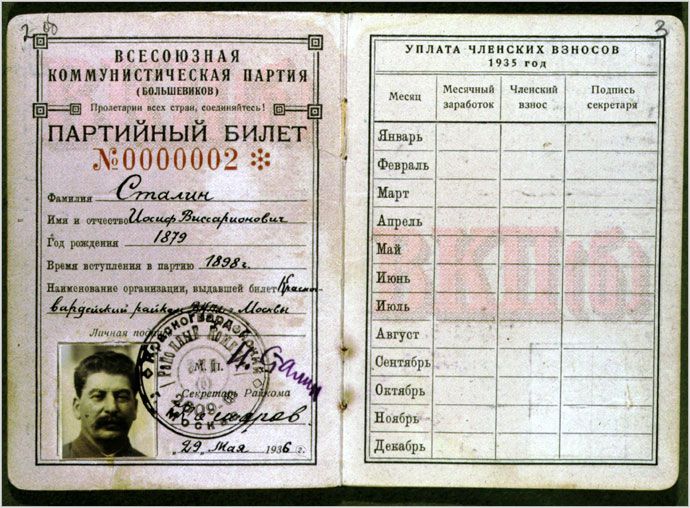 2-00
ВСЕСОЮЗНАЯ
КОММУНИСТИЧЕСКАЯ ПАРТИЯ
(БОЛЬШЕВИКОВ)
Пролетарии всех стран, соединяйтесь!
ПАРТИЙНЫЙ БИЛЕТ
№0000002
Фамилия Сталин
Имя и отчество Иосиф Виссарионович
Год рождения 1879
Время вступления в партию 1898 г.
Наименование организации, выдавшей билет Красно-
гвардейский райком г. Москвы
Личная подпись
И. Сталин
М. П.
Секретарь Райкома
МОСКВА
29 Мая 1936 г.
3
УПЛАТА ЧЛЕНСКИХ ВЗНОСОВ
1935 год
Месяц Месячный заработок Членский взнос Подпись секретаря
Январь
Февраль
Март
Апрель
Май
Июнь
Июль
Август
Сентябрь
Октябрь
Ноябрь
Декабрь
ВКП(б)